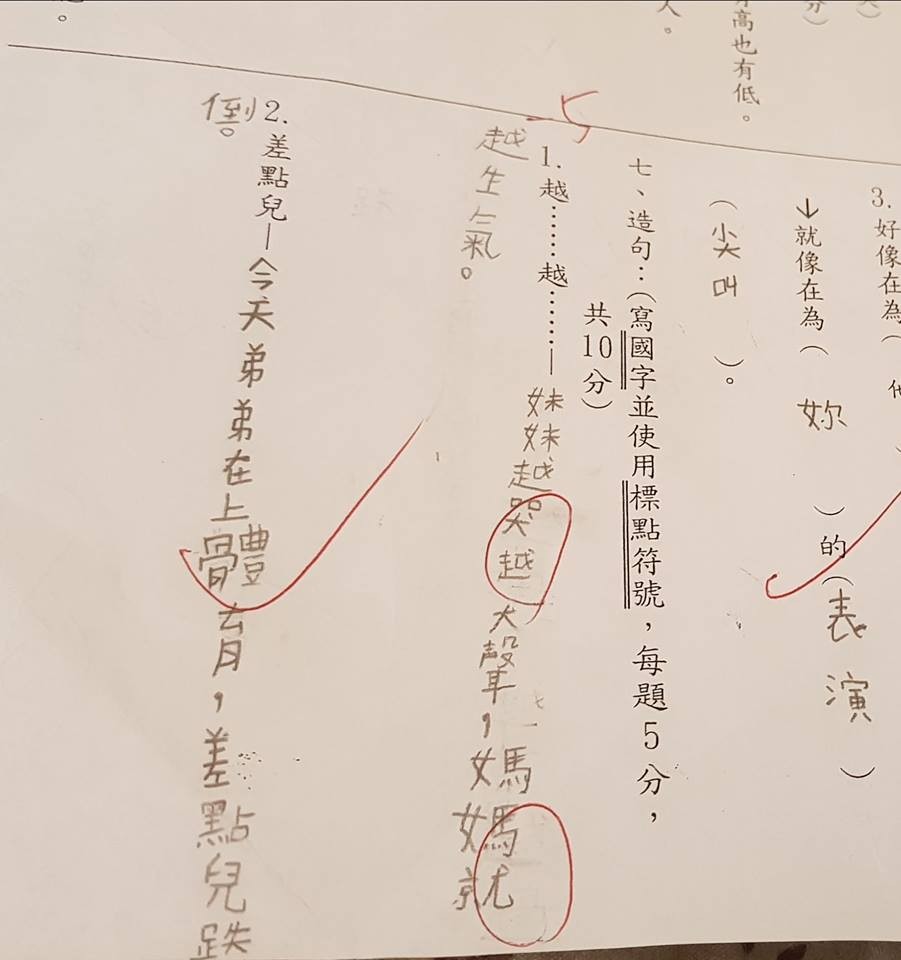 高也有低。
3. 好像在為(
↓就像在為( 妳 )的(表演)
(尖叫)。
七、造句：(寫國字並使用標點符號，每題5分，
共10分)
1. 越……越……—妹妹越哭越大聲，媽媽就
越生氣。
2. 差點兒—今天弟弟在上體育，差點兒跌
倒。